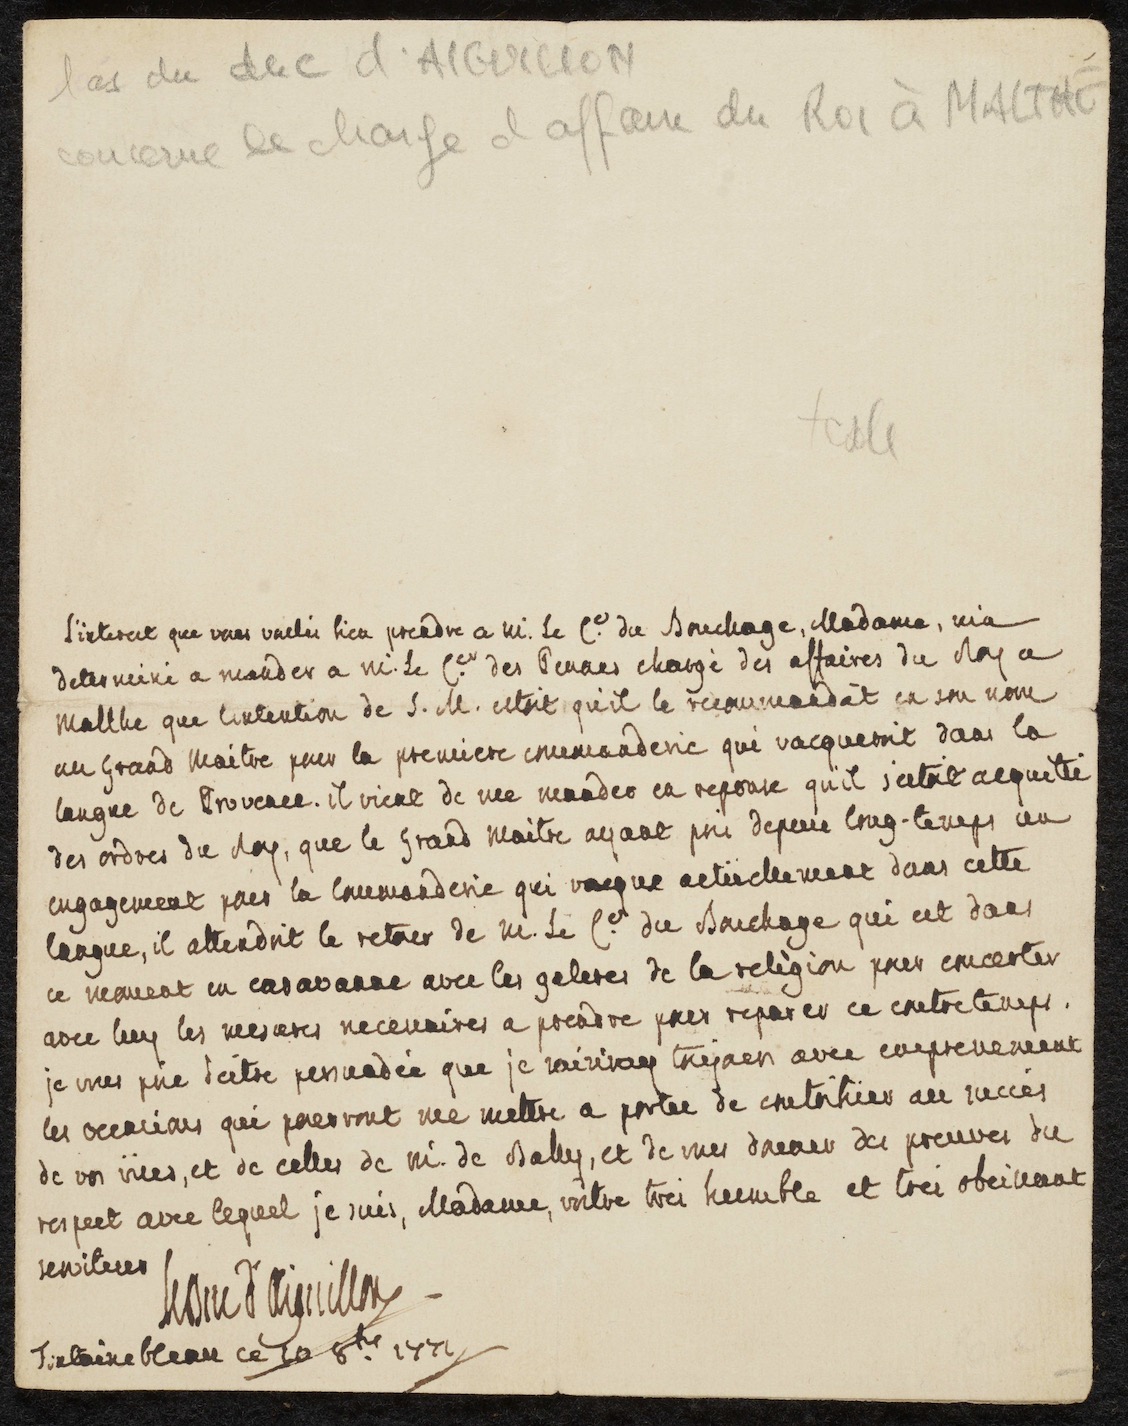 las du duc d'AIGUILLON
concerne le chargé d'affaire du Roi à MALTHE
L'interest que vous voulés bien prendre a M. Le C.er du Bouchage, Madame, m'a
determiné a mander a M. Le C.er des Pennes chargé des affaires du Roy a
Malthe que l'intention de S. M. estoit qu'il le recommandât en son nom
au Grand Maitre pour la premiere commanderie qui vacqueroit dans la
langue de Provence. il vient de me mander en reponse qu'il s'estoit acquitté
des ordres du Roy, que le Grand Maitre ayant pris depuis long-temps un
engagement pour la Commanderie qui vacque actüellement dans cette
langue, il attendoit le retour de M. Le C.er du Bouchage qui est dans
ce moment en caravanne avec les galeres de la religion pour concerter
avec luy les mesures necessaires a prendre pour reparer ce contretemps.
je vous prie d'être persuadée que je saisiray toujours avec empressement
les occasions qui pourront me mettre a portée de contribuer au succés
de vos vües, et de celles de M. de Bally, et de vous donner des preuves du
respect avec lequel je suis, Madame, vôtre trés humble et trés obeissant
serviteur
Le Duc d'Aiguillon
Fontainebleau ce 20 8.bre 1771